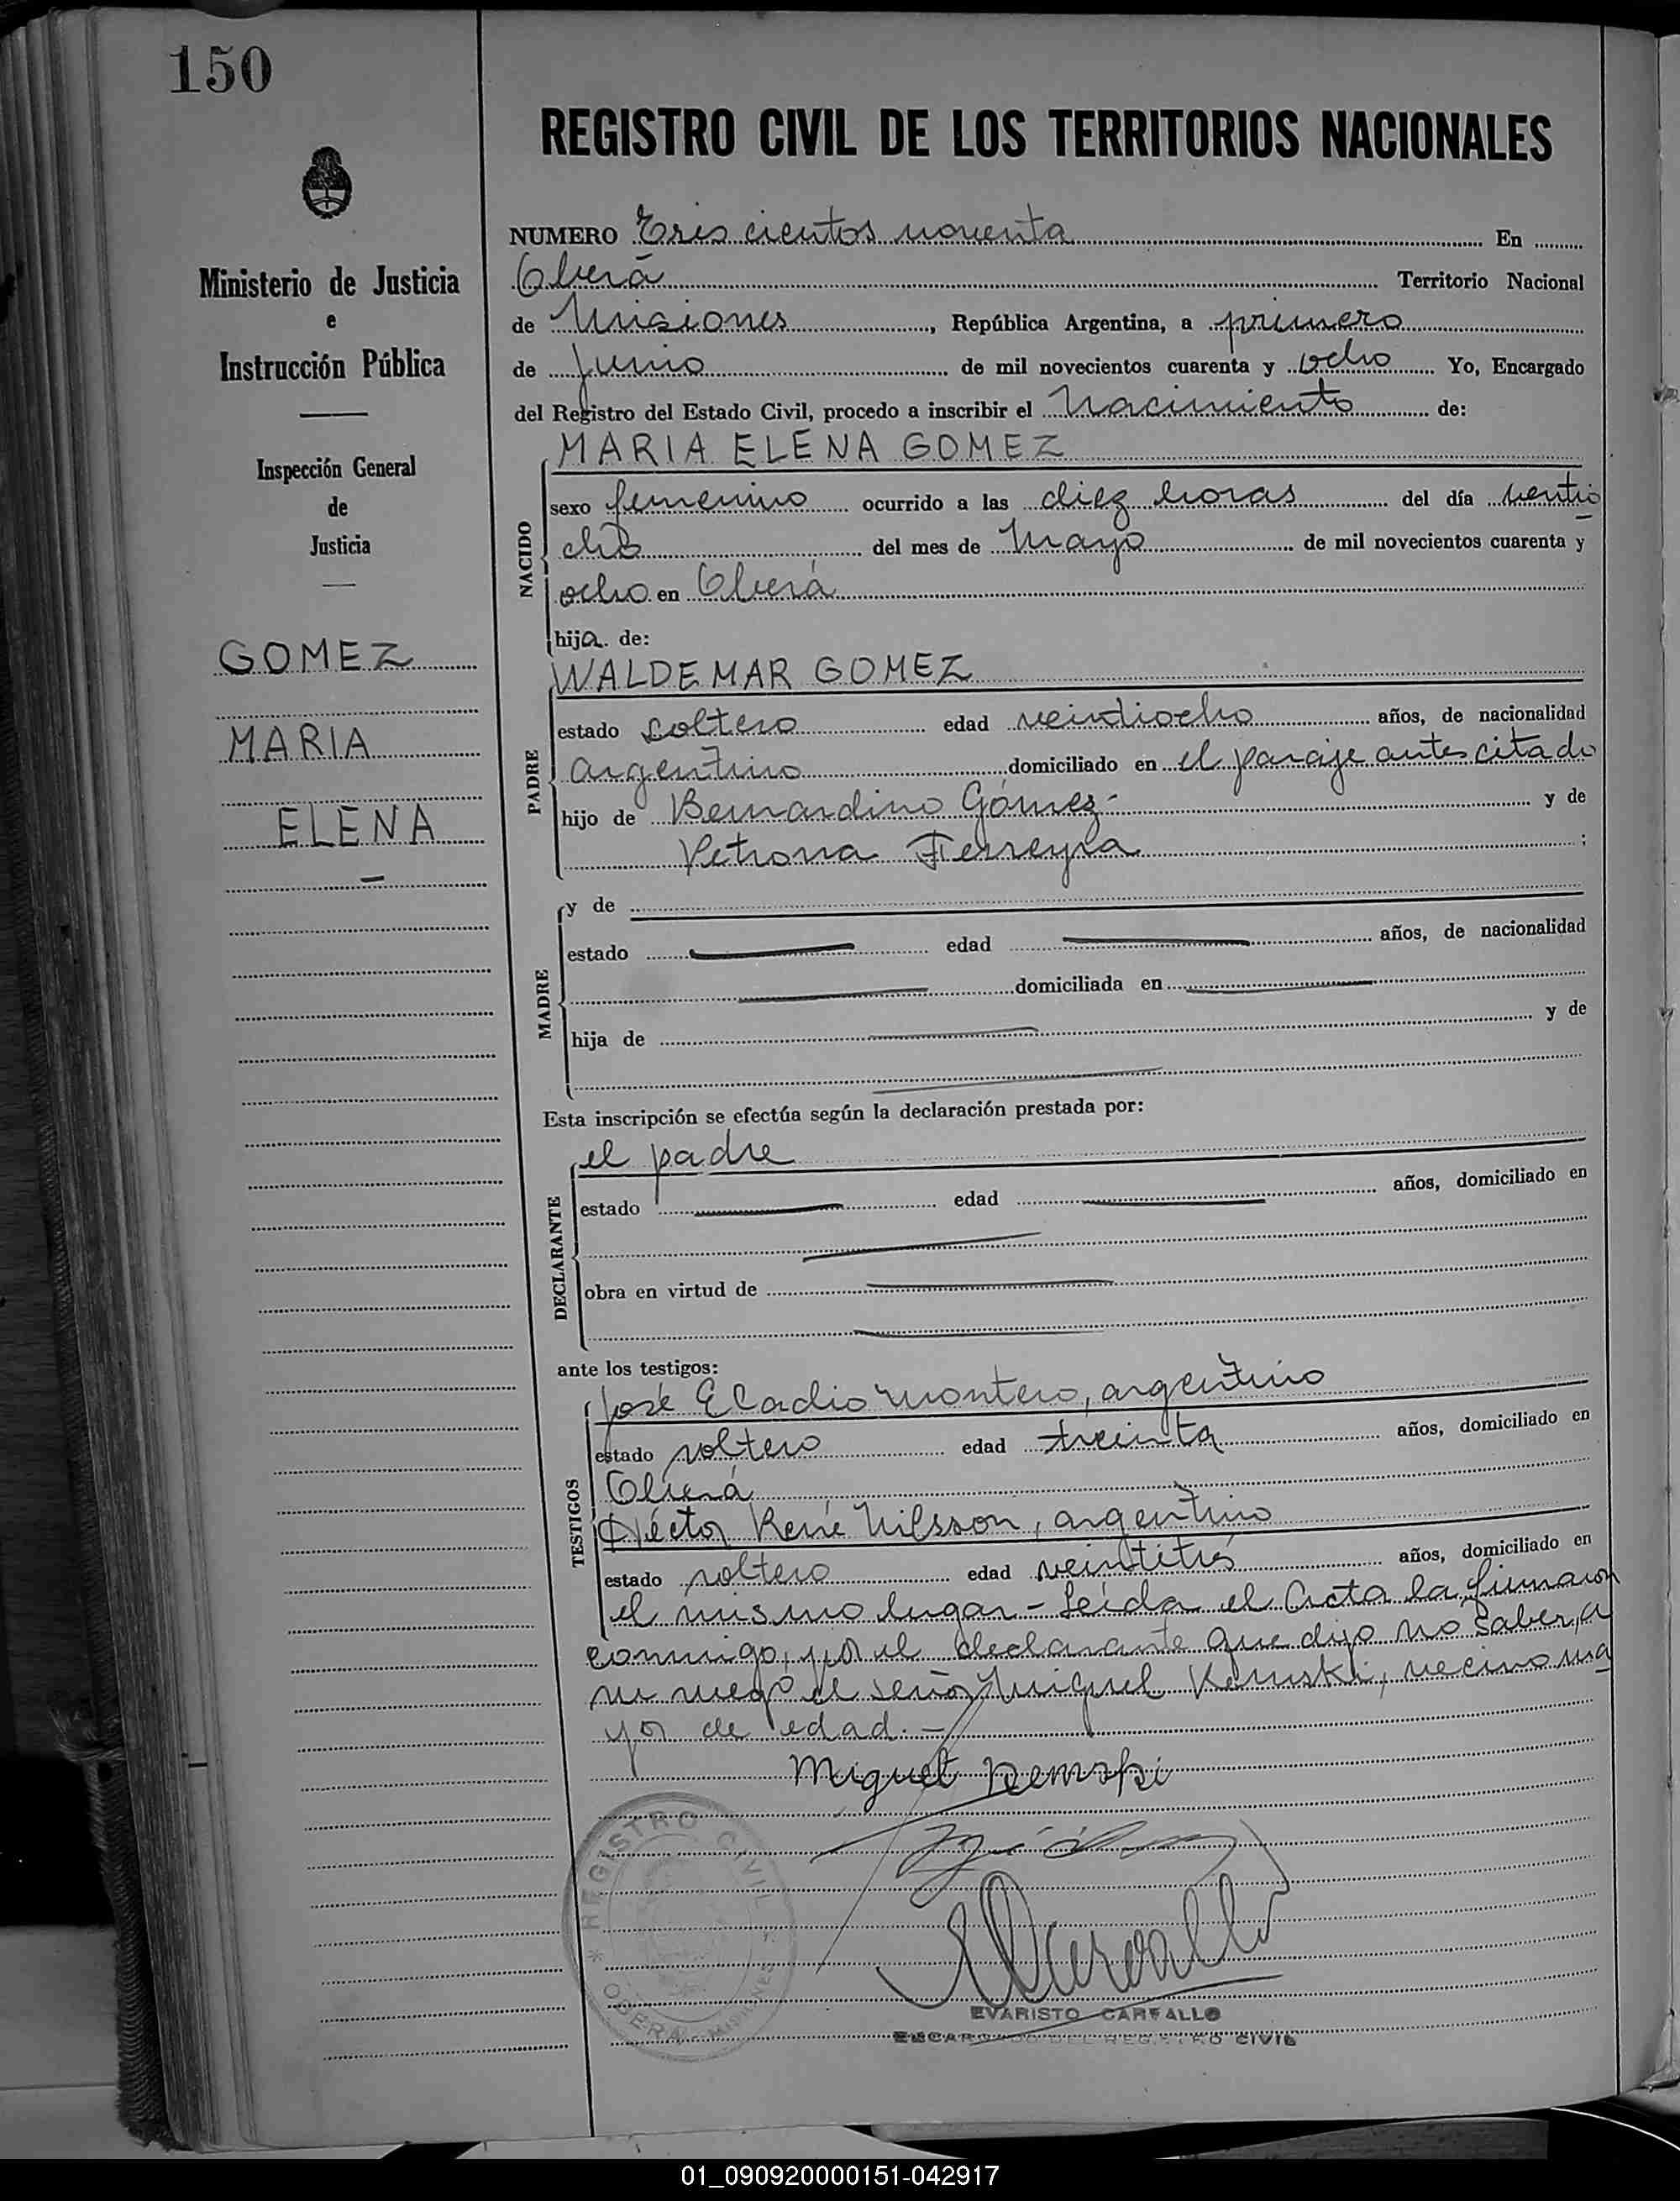 150
REGISTRO CIVIL DE LOS TERRITORIOS NACIONALES
Ministerio de Justicia
e
Instrucción Pública
Inspección General
de
Justicia
GOMEZ
MARIA
ELENA
NUMERO Tres cientos noventa En
Oberá Territorio Nacional
de Misiones, República Argentina, a primero
de Junio de mil novecientos cuarenta y ocho Yo, Encargado
del Registro del Estado Civil, procedo a inscribir el Nacimiento de:
MARIA ELENA GOMEZ
NACIDO
sexo femenino ocurrido a las diez horas del día ventio
cho del mes de Mayo de mil novecientos cuarenta y
ocho en Oberá
hija de:
WALDEMAR GOMEZ
PADRE
estado soltero edad veintiocho años, de nacionalidad
argentino domiciliado en el paraje antes citado
hijo de Bernardino Gómez- y de
Petrona Ferreyra ;
MADRE
y de
estado edad años, de nacionalidad
domiciliada en
hija de y de
Esta inscripción se efectúa según la declaración prestada por:
el padre
DECLARANTE
estado edad años, domiciliado en
obra en virtud de
ante los testigos:
TESTIGOS
José Eladio Montero, argentino
estado soltero edad treinta años, domiciliado en
Oberá
Héctor René Nilsson, argentino
estado soltero edad veintitrés años, domiciliado en
el mismo lugar - Leída el Acta la firmaron
conmigo, por el declarante que dijo no saber, a
su ruego el señor Miguel Kemski, vecino ma
yor de edad.-
Miguel Kemski
REGISTRO CIVIL
* OBERA - MISIONES *
EVARISTO CARFALLO
ENCARGADO DEL REGISTRO CIVIL
01_090920000151-042917